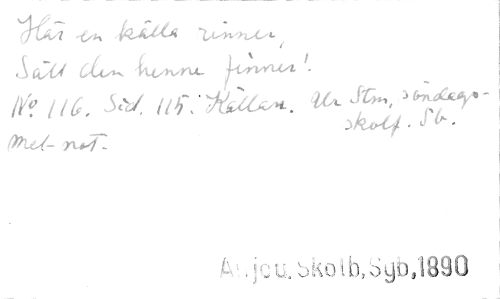 Här en källa rinner,
Säll den henne finner!
No. 116. Sid. 115. Källan. Ur Stm, söndags-
skolf. Sb.
Mel-not.
Anjou, Skolb, Syb, 1890